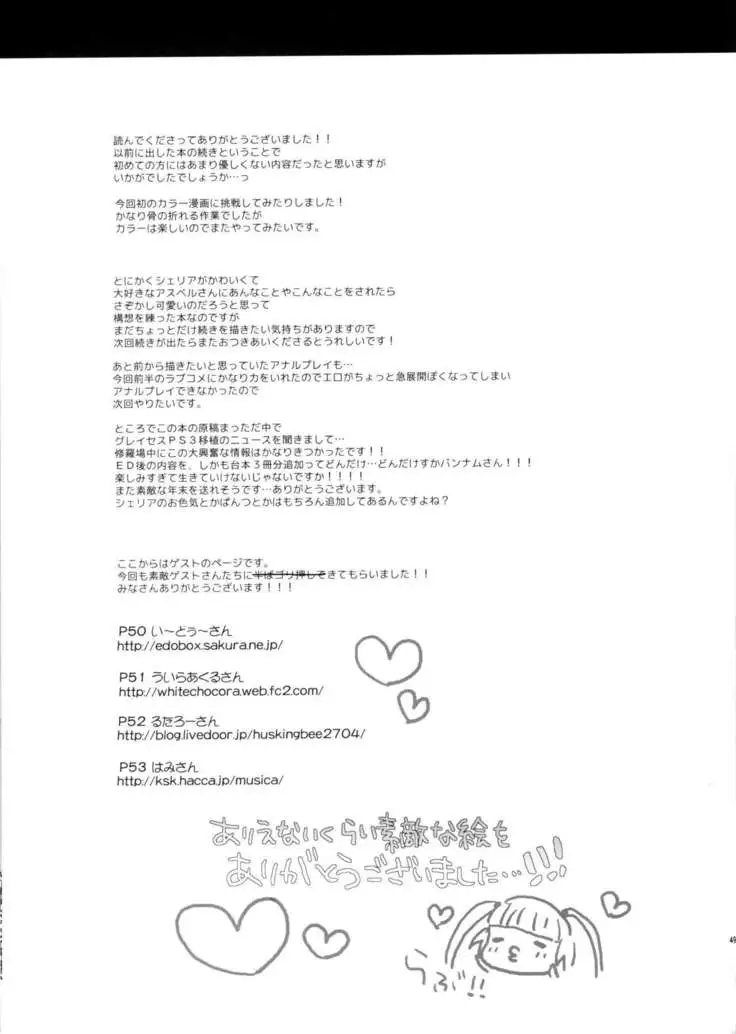 読んでくださってありがとうございました！！
以前に出した本の続きということで
初めての方にはあまり優しくない内容だったと思いますが
いかがでしたでしょうか…っ
今回初のカラー漫画に挑戦してみたりしました！
かなり骨の折れる作業でしたが
カラーは楽しいのでまたやってみたいです。
とにかくシェリアがかわいくて
大好きなアスベルさんにあんなことやこんなことをされたら
さぞかし可愛いのだろうと思って
構想を練った本なのですが
まだちょっとだけ続きを描きたい気持ちがありますので
次回続きが出たらまたおつきあいくださるとうれしいです！
あと前から描きたいと思っていたアナルプレイも…
今回前半のラブコメにかなり力をいれたのでエロがちょっと急展開ぽくなってしまい
アナルプレイできなかったので
次回やりたいです。
ところでこの本の原稿まっただ中で
グレイセスＰＳ３移植のニュースを聞きまして…
修羅場中にこの大興奮な情報はかなりきつかったです！！
ＥＤ後の内容を、しかも台本３冊分追加ってどんだけ…どんだけすかバンナムさん！！！
楽しみすぎて生きていけないじゃないですか！！！！
また素敵な年末を送れそうです…ありがとうございます。
シェリアのお色気とかぱんつとかはもちろん追加してあるんですよね？
ここからはゲストのページです。
今回も素敵ゲストさんたちに半ばゴリ押しできてもらいました！！
みなさんありがとうございます！！！
P50 い～どぅ～さん
http://edobox.sakura.ne.jp/
P51 ういらあくるさん
http://whitechocora.web.fc2.com/
P52 るたろーさん
http://blog.livedoor.jp/huskingbee2704/
P53 はみさん
http://ksk.hacca.jp/musica/
ありえないくらい素敵な絵を
ありがとうございました…!!!
らぶ!!
49